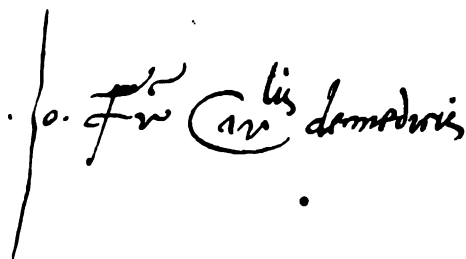 Jo. Fr Carlis demedicis